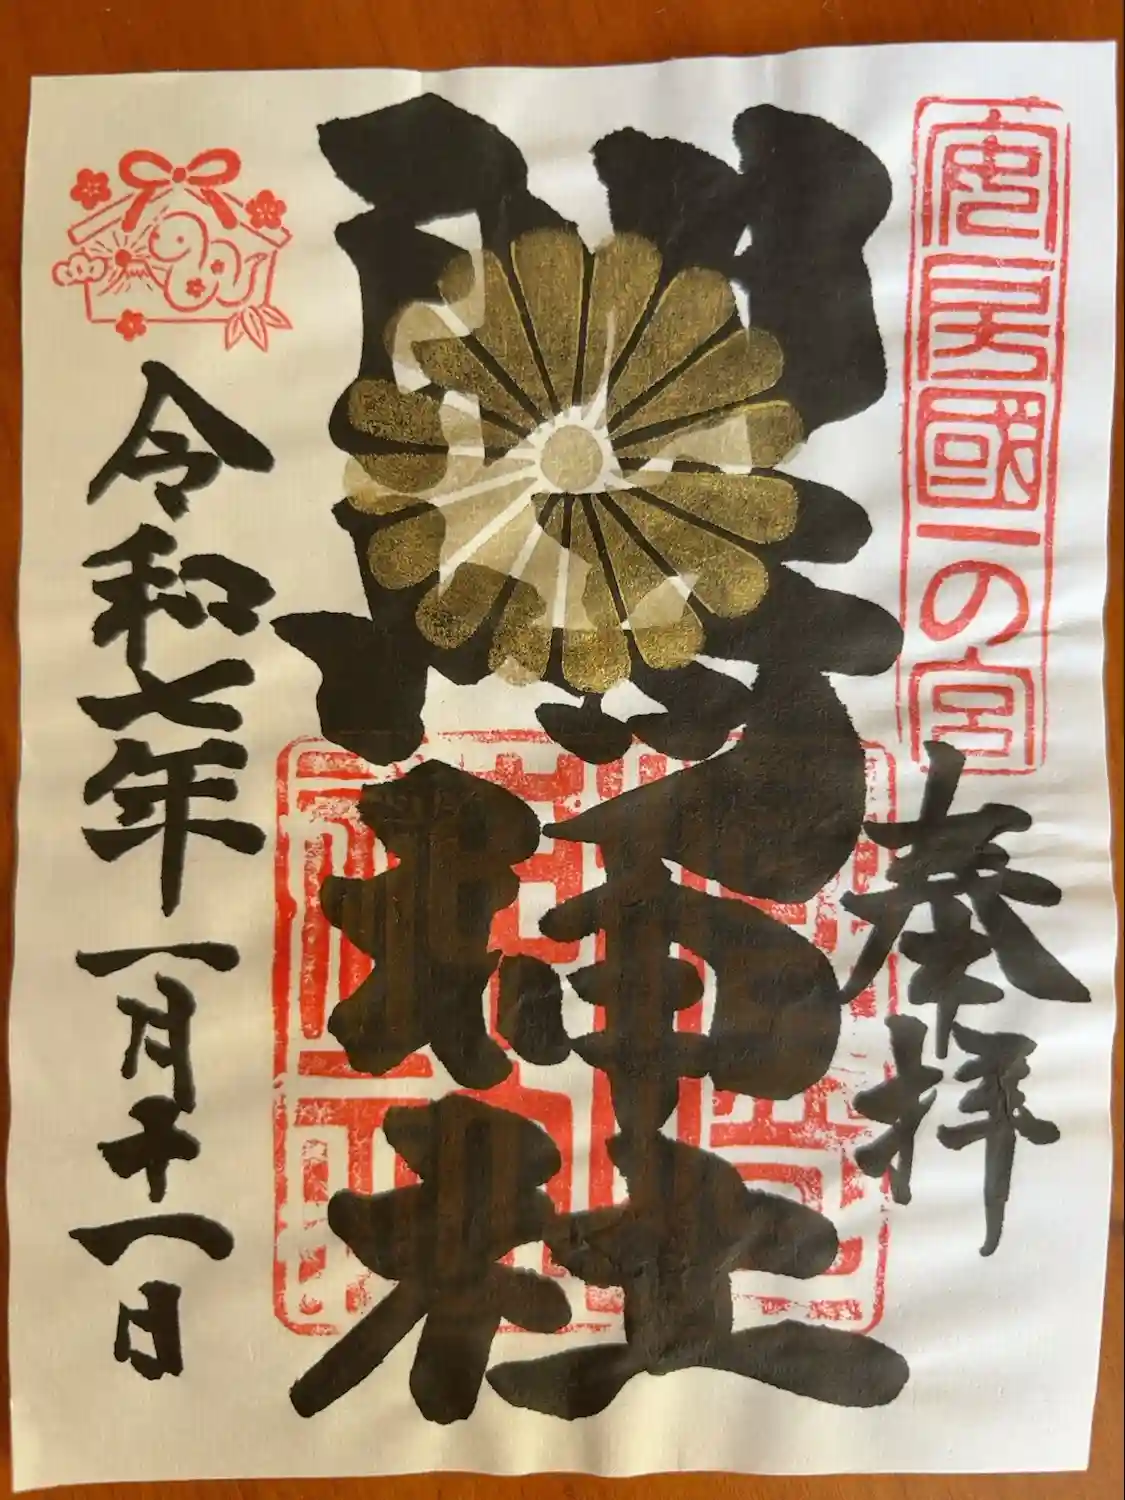 安房國一の宮
奉拝
神社
令和七年一月十一日